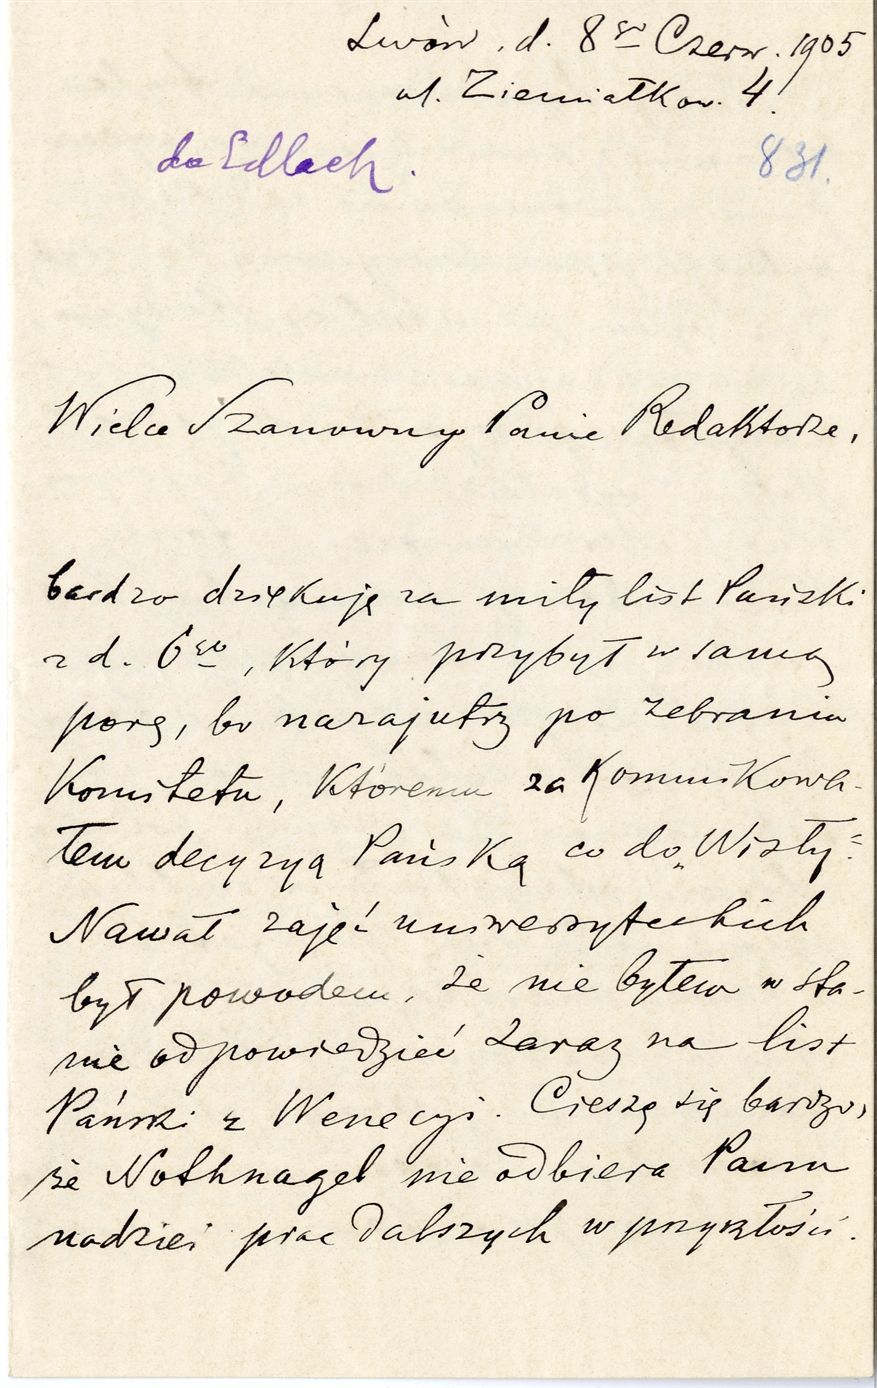 Lwów, d. 8go Czerw. 1905
ul. Ziemiałkow. 4.
do Edlach.
831.
Wielce Szanowny Panie Redaktorze,
bardzo dziękuję za miły list Pański
z d. 6go, który przybył w samą
porę, bo nazajutrz po zebraniu
Komitetu, któremu zakomunikowa-
łem decyzyą Pańską co do „Wisły“.
Nawał zajęć uniwersyteckich
był powodem, że nie byłem w sta-
nie odpowiedzieć zaraz na list
Pański z Wenecyi. Cieszę się bardzo,
że Nothnagel nie odbiera Panu
nadziei prac dalszych w przyszłości.